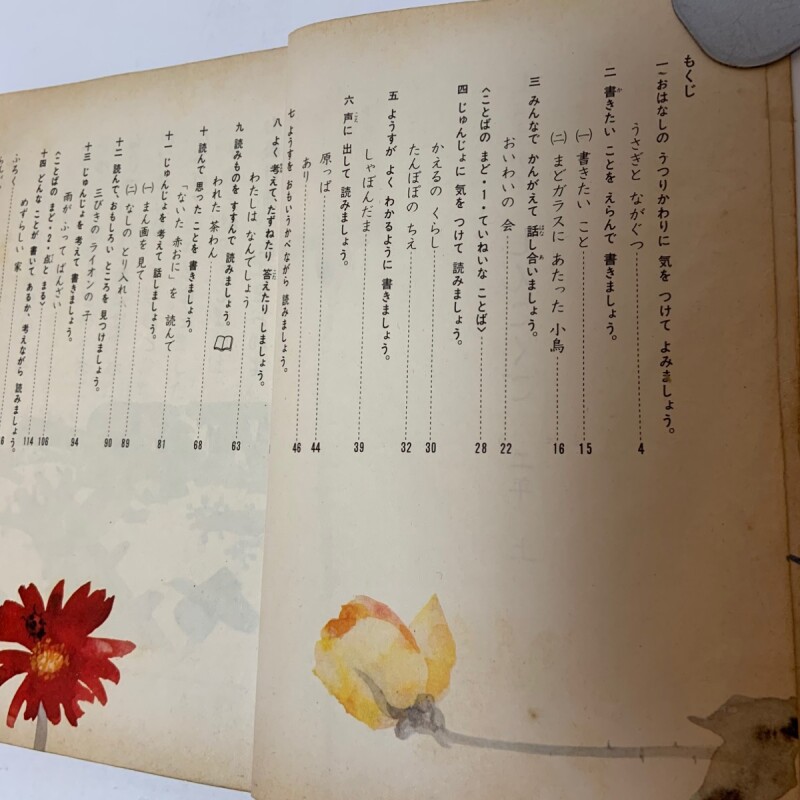 もくじ
一 おはなしの うつりかわりに 気を つけて よみましょう。
うさぎと ながぐつ 4
二 書きたい ことを えらんで 書きましょう。
(一) 書きたい こと 15
(二) まどガラスに あたった 小鳥 16
三 みんなで かんがえて 話し合いましょう。
おいわいの 会 22
〈ことばの まど・1・ていねいな ことば〉 28
四 じゅんじょに 気を つけて 読みましょう。
かえるの くらし 30
たんぽぽの ちえ 32
五 ようすが よく わかるように 書きましょう。
しゃぼんだま 39
六 声に 出して 読みましょう。
原っぱ 44
あり 46
七 ようすを おもいうかべながら 読みましょう。
八 よく 考えて、たずねたり 答えたり しましょう。
わたしは なんでしょう 63
九 読みものを すすんで 読みましょう。
われた 茶わん 68
十 読んで 思った ことを 書きましょう。
「ないた 赤おに」を 読んで 81
十一 じゅんじょを 考えて 話しましょう。
(一) まん画を 見て 89
(二) なしの とり入れ 90
十二 読んで、おもしろい ところを 見つけましょう。
三びきの ライオンの 子 94
十三 じゅんじょを 考えて 書きましょう。
雨が ふって ばんざい 106
〈ことばの まど・2・点と まる〉 114
十四 どんな ことが 書いて あるか、考えながら 読みましょう。
めずらしい 家
ふろく